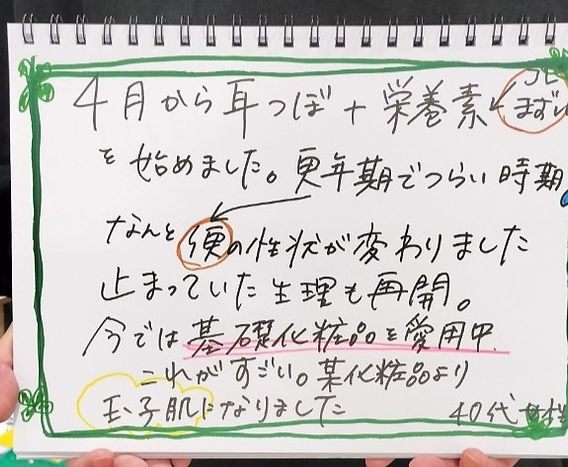 4月から耳つぼ+栄養素
まずい
を始めました。更年期でつらい時期
なんと便の性状が変わりました
止まっていた生理も再開。
今では基礎化粧品を愛用中
これがすごい。某化粧品より
玉子肌になりました
40代女性